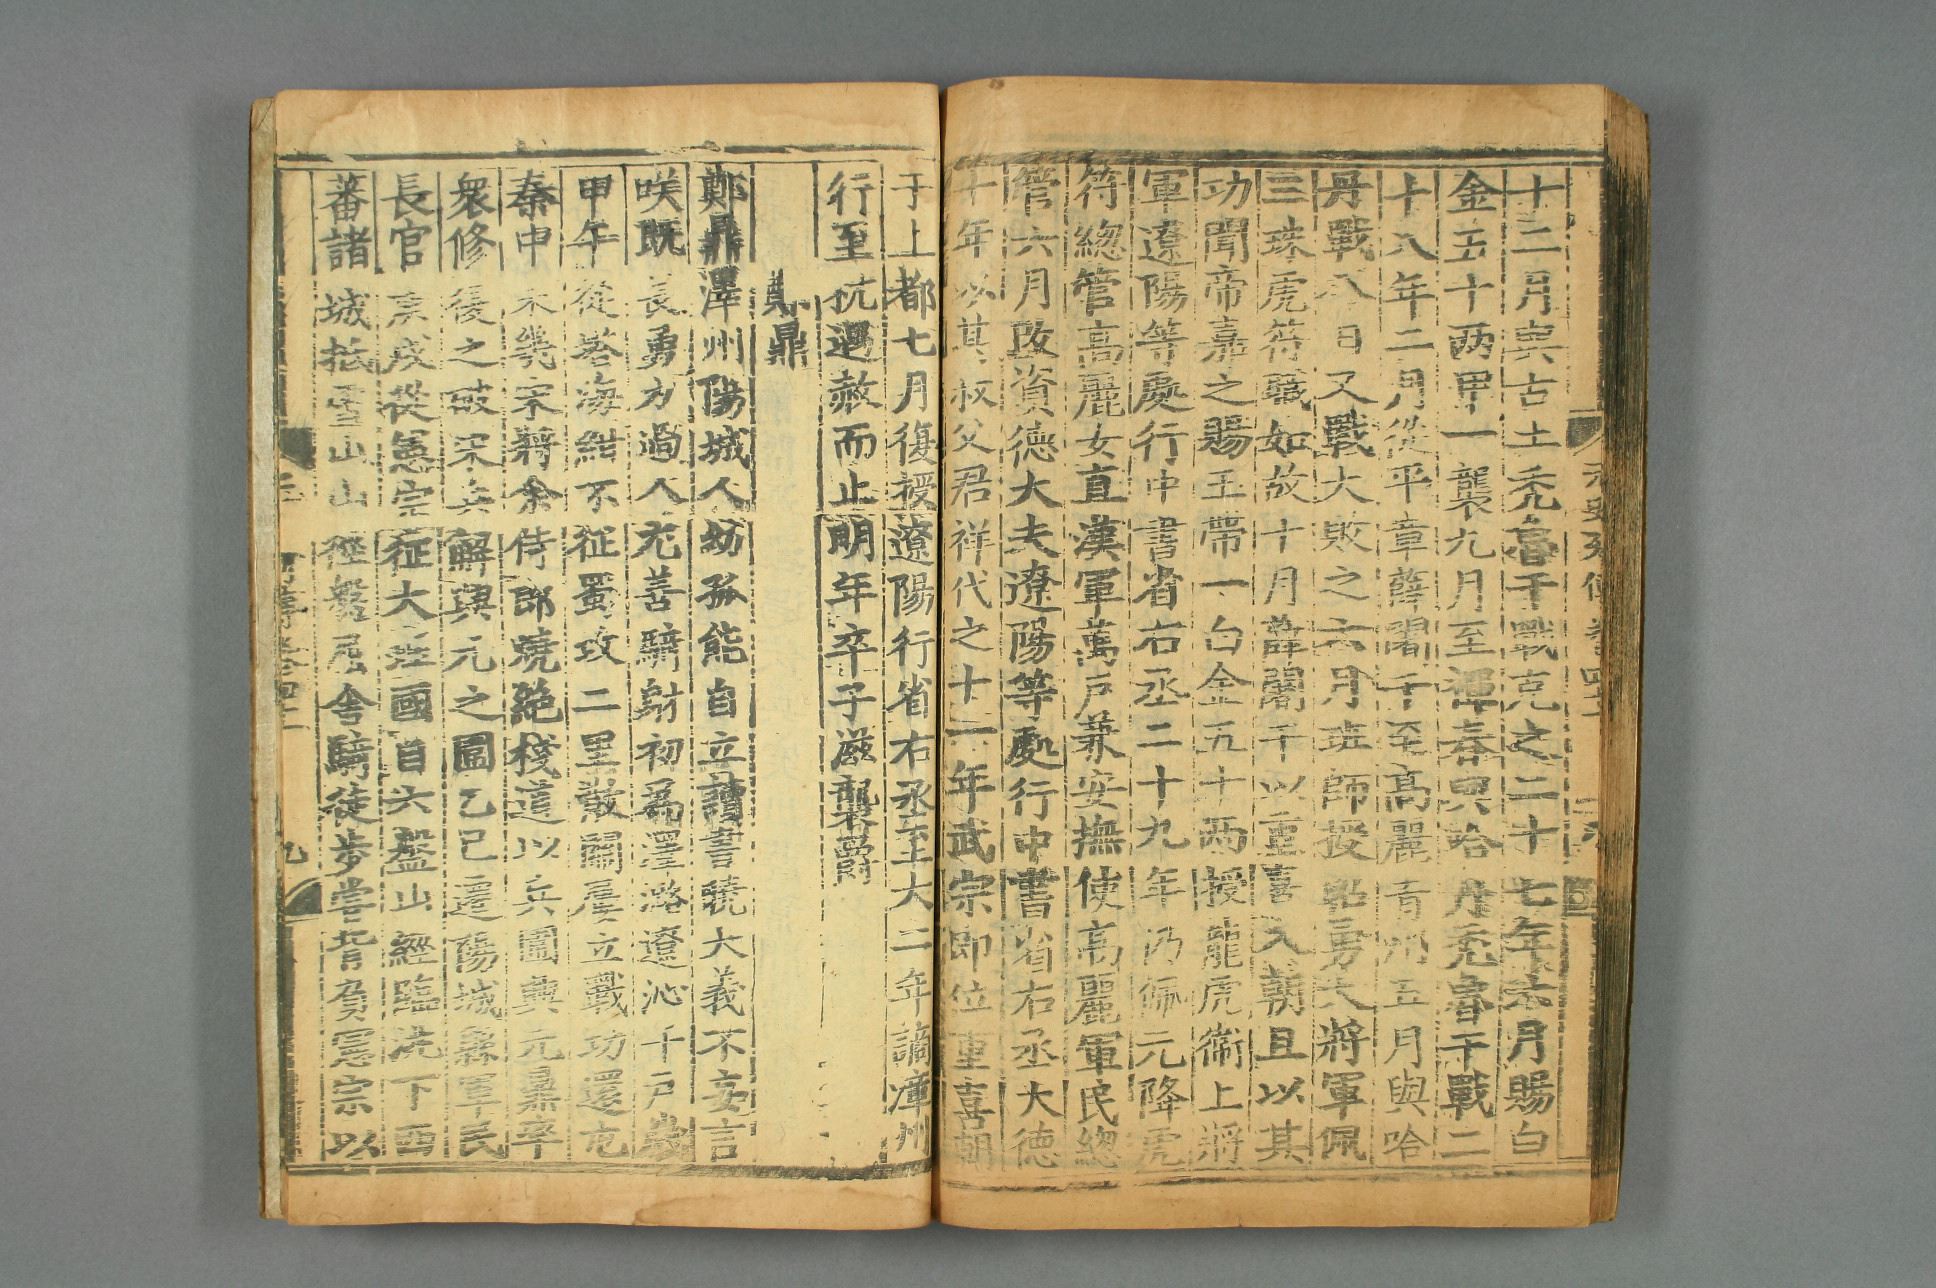 十二月與古土禿魯干戰克之二十七年六月賜白
金五十兩甲一襲九月至禪春與哈丹禿魯干戰二
十八年二月從平章薛闍干至高麗青州五月與哈
丹戰八日又戰大敗之六月班師授昭勇大將軍佩
三珠虎符職如故十月薛闍干以重喜入朝且以其
功聞帝嘉之賜玉帶一白金五十兩授龍虎衛上將
軍遼陽等處行中書省右丞二十九年仍佩元降虎
符總管高麗女直漢軍萬戶兼安撫使高麗軍民總
管六月改資德大夫遼陽等處行中書省右丞大德
十年以其叔父君祥代之十一年武宗即位重喜朝
于上都七月復授遼陽行省右丞至大二年謫漳州
行至杭遇赦而止明年卒子滋襲爵
鄭鼎
鄭鼎澤州陽城人幼孤能自立讀書曉大義不妄言
咲既長勇力過人尤善騎射初為澤潞遼沁千戶歲
甲午從塔海紺不征蜀攻二里散關屢立戰功還屯
秦中未幾宋將余侍郎燒絕棧道以兵圍興元鼎率
衆修復之破宋兵解興元之圍乙巳遷陽城縣軍民
長官庚戌從憲宗征大理國自六盤山經臨洮下西
蕃諸城抵雪山山徑盤屈舍騎徒步嘗背負憲宗以
九